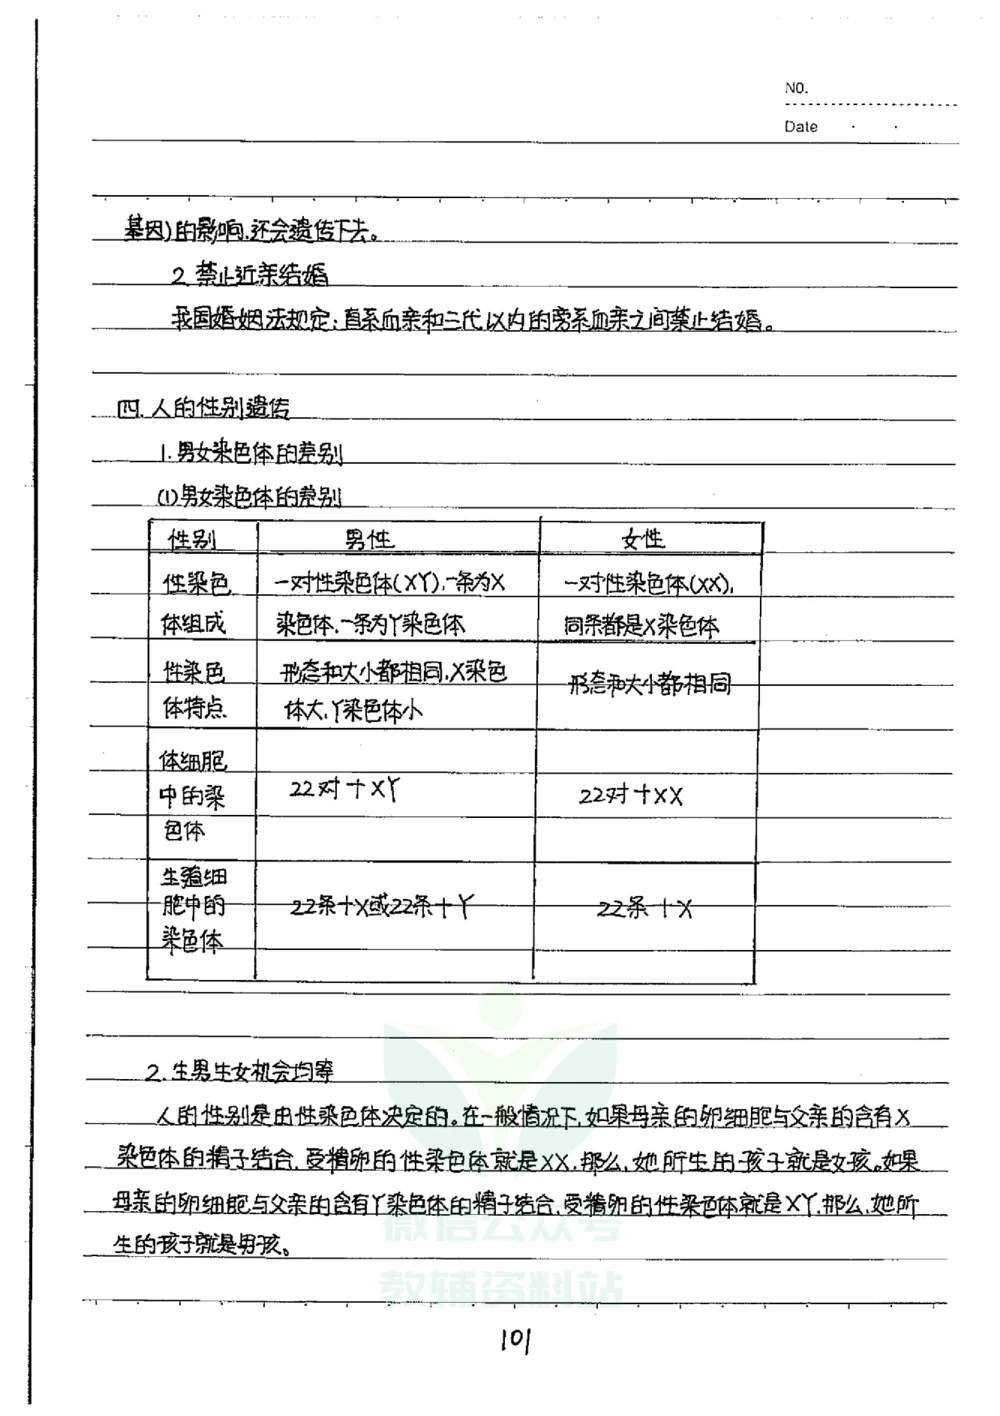 NO.
Date
基因)的影响,还会遗传下去。
2. 禁止近亲结婚
我国婚姻法规定:直系血亲和三代以内的旁系血亲之间禁止结婚。
四. 人的性别遗传
1. 男女染色体的差别
(1)男女染色体的差别
性别 男性 女性
性染色 一对性染色体(XY),一条为X 一对性染色体(XX),
体组成 染色体,一条为Y染色体 同条都是X染色体
性染色 形态和大小都相同,X染色 形态和大小都相同
体特点 体大,Y染色体小
体细胞
中的染 22对+XY 22对+XX
色体
生殖细
胞中的 22条+X或22条+Y 22条+X
染色体
2. 生男生女机会均等
人的性别是由性染色体决定的。在一般情况下,如果母亲的卵细胞与父亲的含有X
染色体的精子结合,受精卵的性染色体就是XX,那么,她所生的孩子就是女孩。如果
母亲的卵细胞与父亲的含有Y染色体的精子结合,受精卵的性染色体就是XY,那么,她所
生的孩子就是男孩。
微信公众号
教辅资料站
101